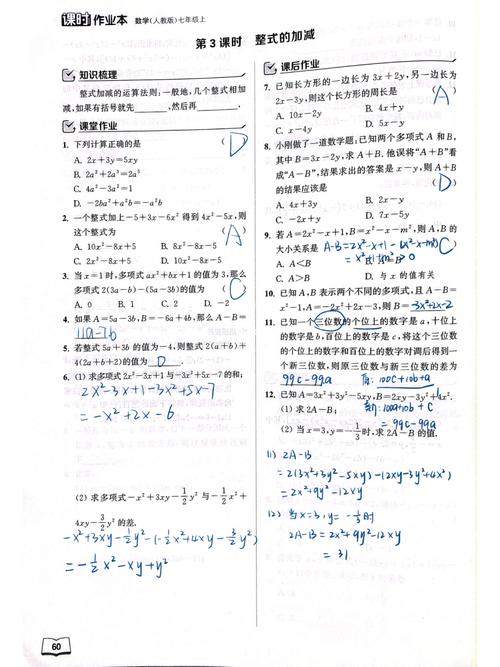 课时作业本 数学(人教版)七年级上
第3课时 整式的加减
知识梳理
整式加减的运算法则:一般地,几个整式相加
减,如果有括号就先________,然后再________.
课堂作业
1. 下列计算正确的是 (D)
A. 2x+3y=5xy
B. 2a²+2a³=2a⁵
C. 4a²-3a²=1
D. -2ba²+a²b=-a²b
2. 一个整式加上-5+3x-6x²得到4x²-5x,则
这个整式为 (A)
A. 10x²-8x+5 B. 8x²-8x-5
C. 2x²-8x+5 D. 10x²-8x-5
3. 当x=1时,多项式ax²+bx+1的值为3,那么
多项式2(3a-b)-(5a-3b)的值为 (C)
A. 0 B. 1 C. 2 D. -2
4. 如果A=5a-3b,B=-6a+4b,那么A-B=
11a-7b
5. 若整式5a+3b的值为-4,则整式2(a+b)+
4(2a+b+2)的值为 D
6. (1) 求多项式2x²-3x+1与-3x²+5x-7的和;
2x²-3x+1-3x²+5x-7
=-x²+2x-6
(2) 求多项式-x²+3xy-1/2y²与-1/2x²+
4xy-3/2y²的差.
-x²+3xy-1/2y²-(-1/2x²+4xy-3/2y²)
=-1/2x²-xy+y²
60
课后作业
7. 已知长方形的一边长为3x+2y,另一边长为
2x-3y,则这个长方形的周长是 (A)
A. 10x-2y B. 4x+y
C. x-4y D. 5x-y
8. 小刚做了一道数学题:已知两个多项式A和B,
其中B=3x-2y,求A+B.他误将“A+B”看
成“A-B”,结果求出的答案是x-y,则A+B
的结果应该是 (D)
A. 4x+3y B. 2x-y
C. -2x+y D. 7x-5y
9. 若A=2x²-x+1,B=x²-x-m²,则A,B的
大小关系是 A-B=2x²-x+1-(x²-x-m²) (C)
=x²+1+m²>0
A. A<B B. A=B
C. A>B D. 与x的值有关
10. 已知A,B表示两个不同的多项式,且A-B=
x²-1,A=-2x²+2x-3,则B=-3x²+2x-2
11. 已知一个三位数的个位上的数字是a,十位上
的数字是b,百位上的数字是c,将这个三位数
的个位上的数字和百位上的数字对调后得到一
个新三位数,则原三位数与新三位数的差为
99c-99a 原:100c+10b+a
新:100a+10b+c
=99c-99a
12. 已知A=3x²+3y²-5xy,B=2xy-3y²+4x².
(1) 求2A-B;
(2) 当x=3,y=-1/3时,求2A-B的值.
(1) 2A-B
=2(3x²+3y²-5xy)-(2xy-3y²+4x²)
=2x²+9y²-12xy
(2) 当x=3,y=-1/3时
2A-B=2x²+9y²-12xy
=31